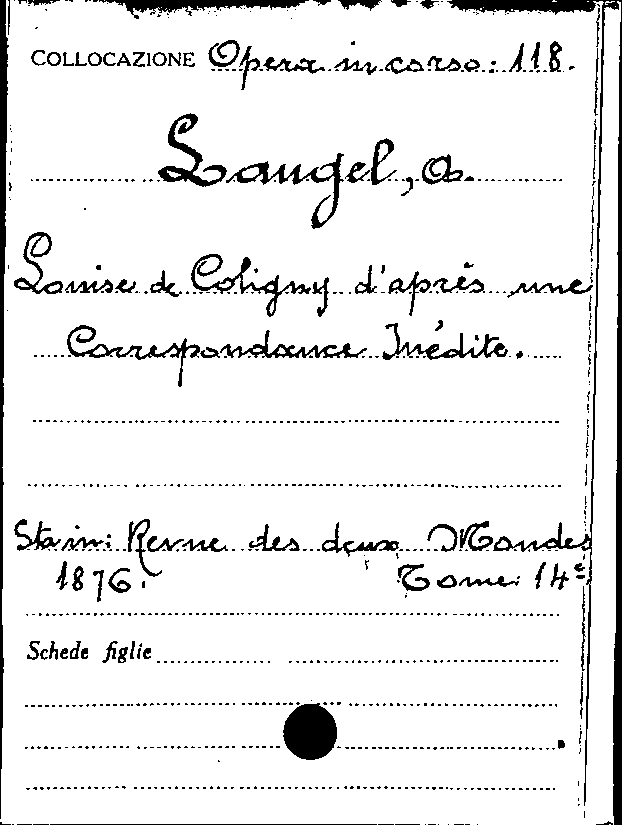 COLLOCAZIONE Opera in corso: 118.
Laugel, A.
Louise de Coligny d'après une
Correspondance Inédite.
Sta in: Revue des deux Mondes
1876. Tome 14e
Schede figlie